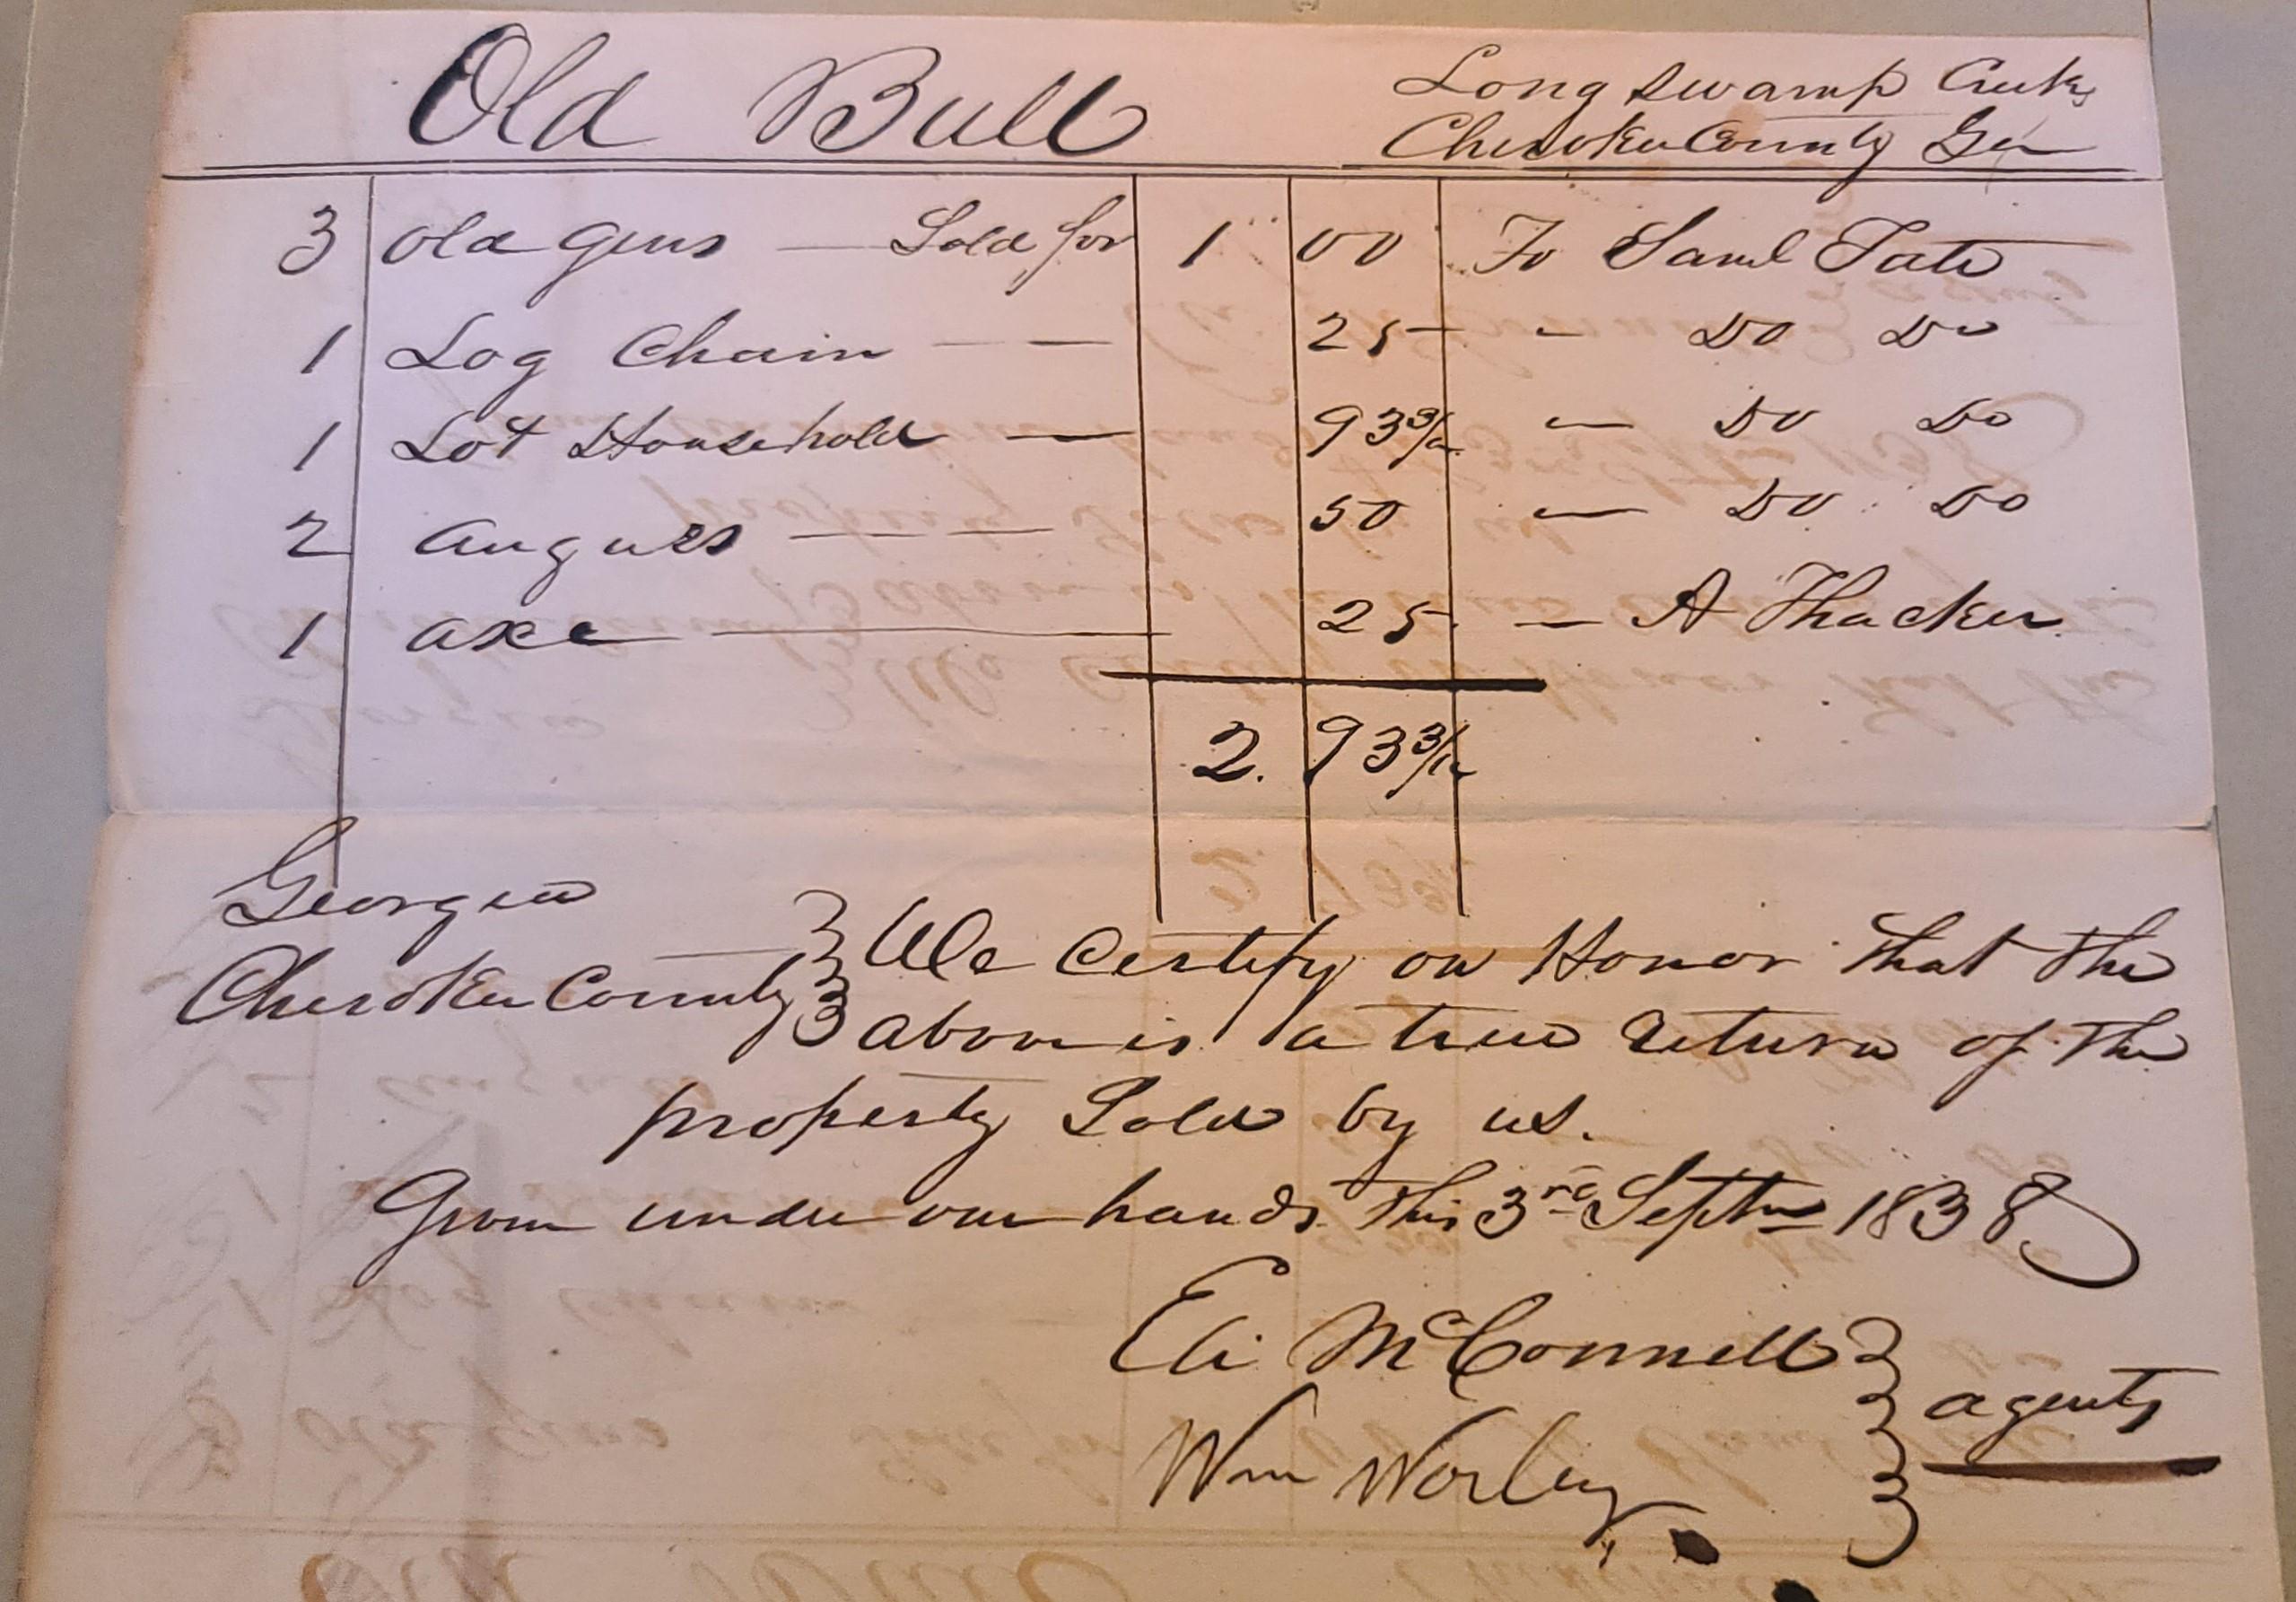 Old Bull
Long Swamp Creek,
Cherokee County Ga
3 old guns — Sold for 1 00 To Saml Tate
1 Log Chain — — 25 " Do Do
1 Lot Household — 93 3/4 " Do Do
2 augurs — — — 50 " Do Do
1 axe — 25 " A Thacker
2. 93 3/4
Georgia
Cherokee County } We Certify on Honor that the
above is a true return of the
property Sold by us.
Given under our hands this 3rd Septr 1838
Eli McConnell
Wm Worley } agents